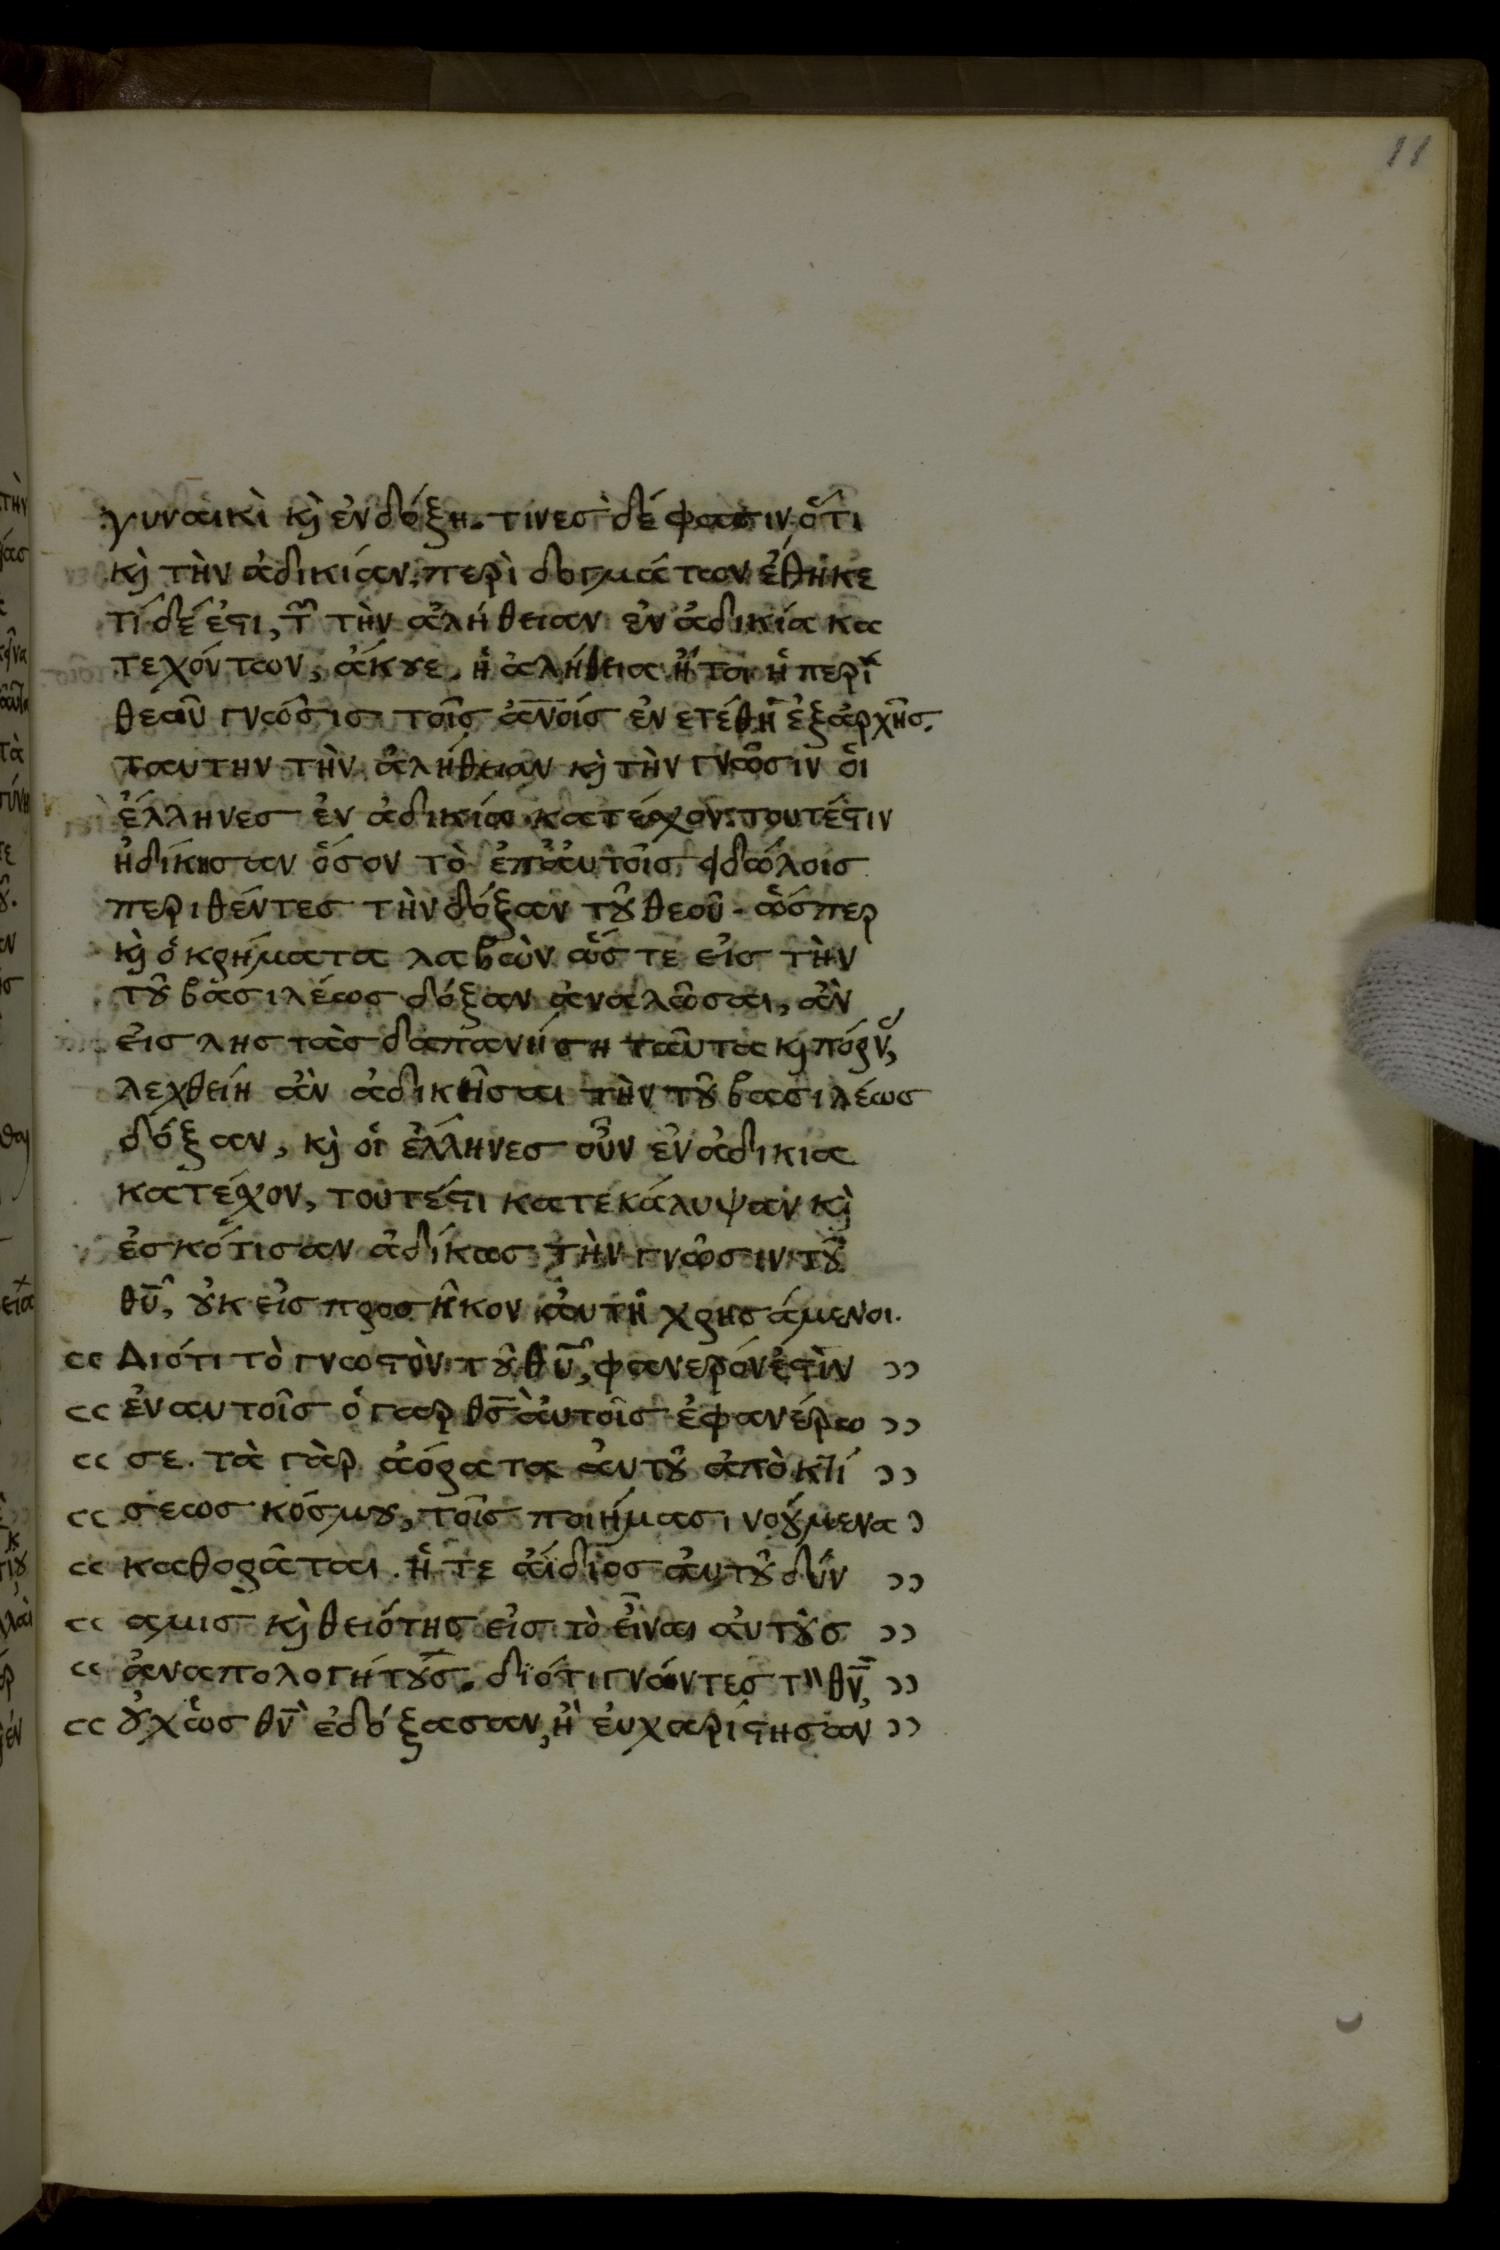 11
γυναικὶ κ̀ ἐνδόξη. τινὲσ δέ φασιν ὅτι
κ̀ τὴν ἀδικίαν, περὶ δογμάτων ἔθηκε
τί δέ ἐϛι, τ̃ τὴν ἀλήθειαν ἐν ἀδικία κα
τεχόντων, ἄκȣε. ἡ ἀλήθεια ἤτοι ἡ περὶ
θεοῦ γνῶσις τοῖς ἀν̅οις ἐν ετέθη ἐξαρχῆς.
ταυτην τὴν ἀλήθειαν κ̀ τὴν γνῶσιν οἱ
ἑλληνεσ ἐν ἀδικία κατέχον. τουτέϛιν
ἠδίκησαν ὅσον τὸ ἐπ' ἀυτοῖς ἐιδώλοισ
περιθέντεσ τὴν δόξαν τȣ͂ θεοῦ. ὥσπερ
κ̀ ὁ χρήματα λαβὼν ὥστε εἰσ τὴν
τȣ͂ βασιλέωσ δόξαν ἀναλῶσαι, ἀν
εἰσ ληστὰσ δαπανήση ταῦτα κ̀ πόρν,
λεχθείη ἀν ἀδικῆσαι τὴν τȣ͂ βασιλέωσ
δόξαν, κ̀ οἱ ἑλληνεσ οὖν ἐν ἀδικια
κατέχον, τουτέϛι κατεκάλυψαν κ̀
ἐσκότισαν ἀδίκωσ τὴν γνῶσιν τȣ͂
θυ̅, ȣ̓κ εἰσ προσῆκον ἀυτῆ χρησάμενοι.
cc Διότι τὸ γνωϛὸν τȣ͂ θυ̅, φανερόν ἐϛιν ))
cc ἐν αυτοῖσ ὁ γαρ θσ̅ ἀυτοῖσ ἐφανέρω ))
cc σε. τὰ γὰρ ἀόρατα ἀυτȣ͂ ἀπὸ κτί ))
cc σεωσ κόσμȣ, τοῖσ ποιήμασι νοȣ́μενα )
cc καθορᾶται. ἥ τε ἀίδιος ἀυτȣ͂ δύν ))
cc αμισ κ̀ θειότησ εἰσ τὸ εἶναι ἀυτȣ̀σ ))
cc ἀναπολογήτȣσ. διότι γνόντεσ τ̀ θν̅, ))
cc ȣ̓χ ὡσ θν̅ ἐδόξασαν, ἢ ἐυχαρίϛησαν ))